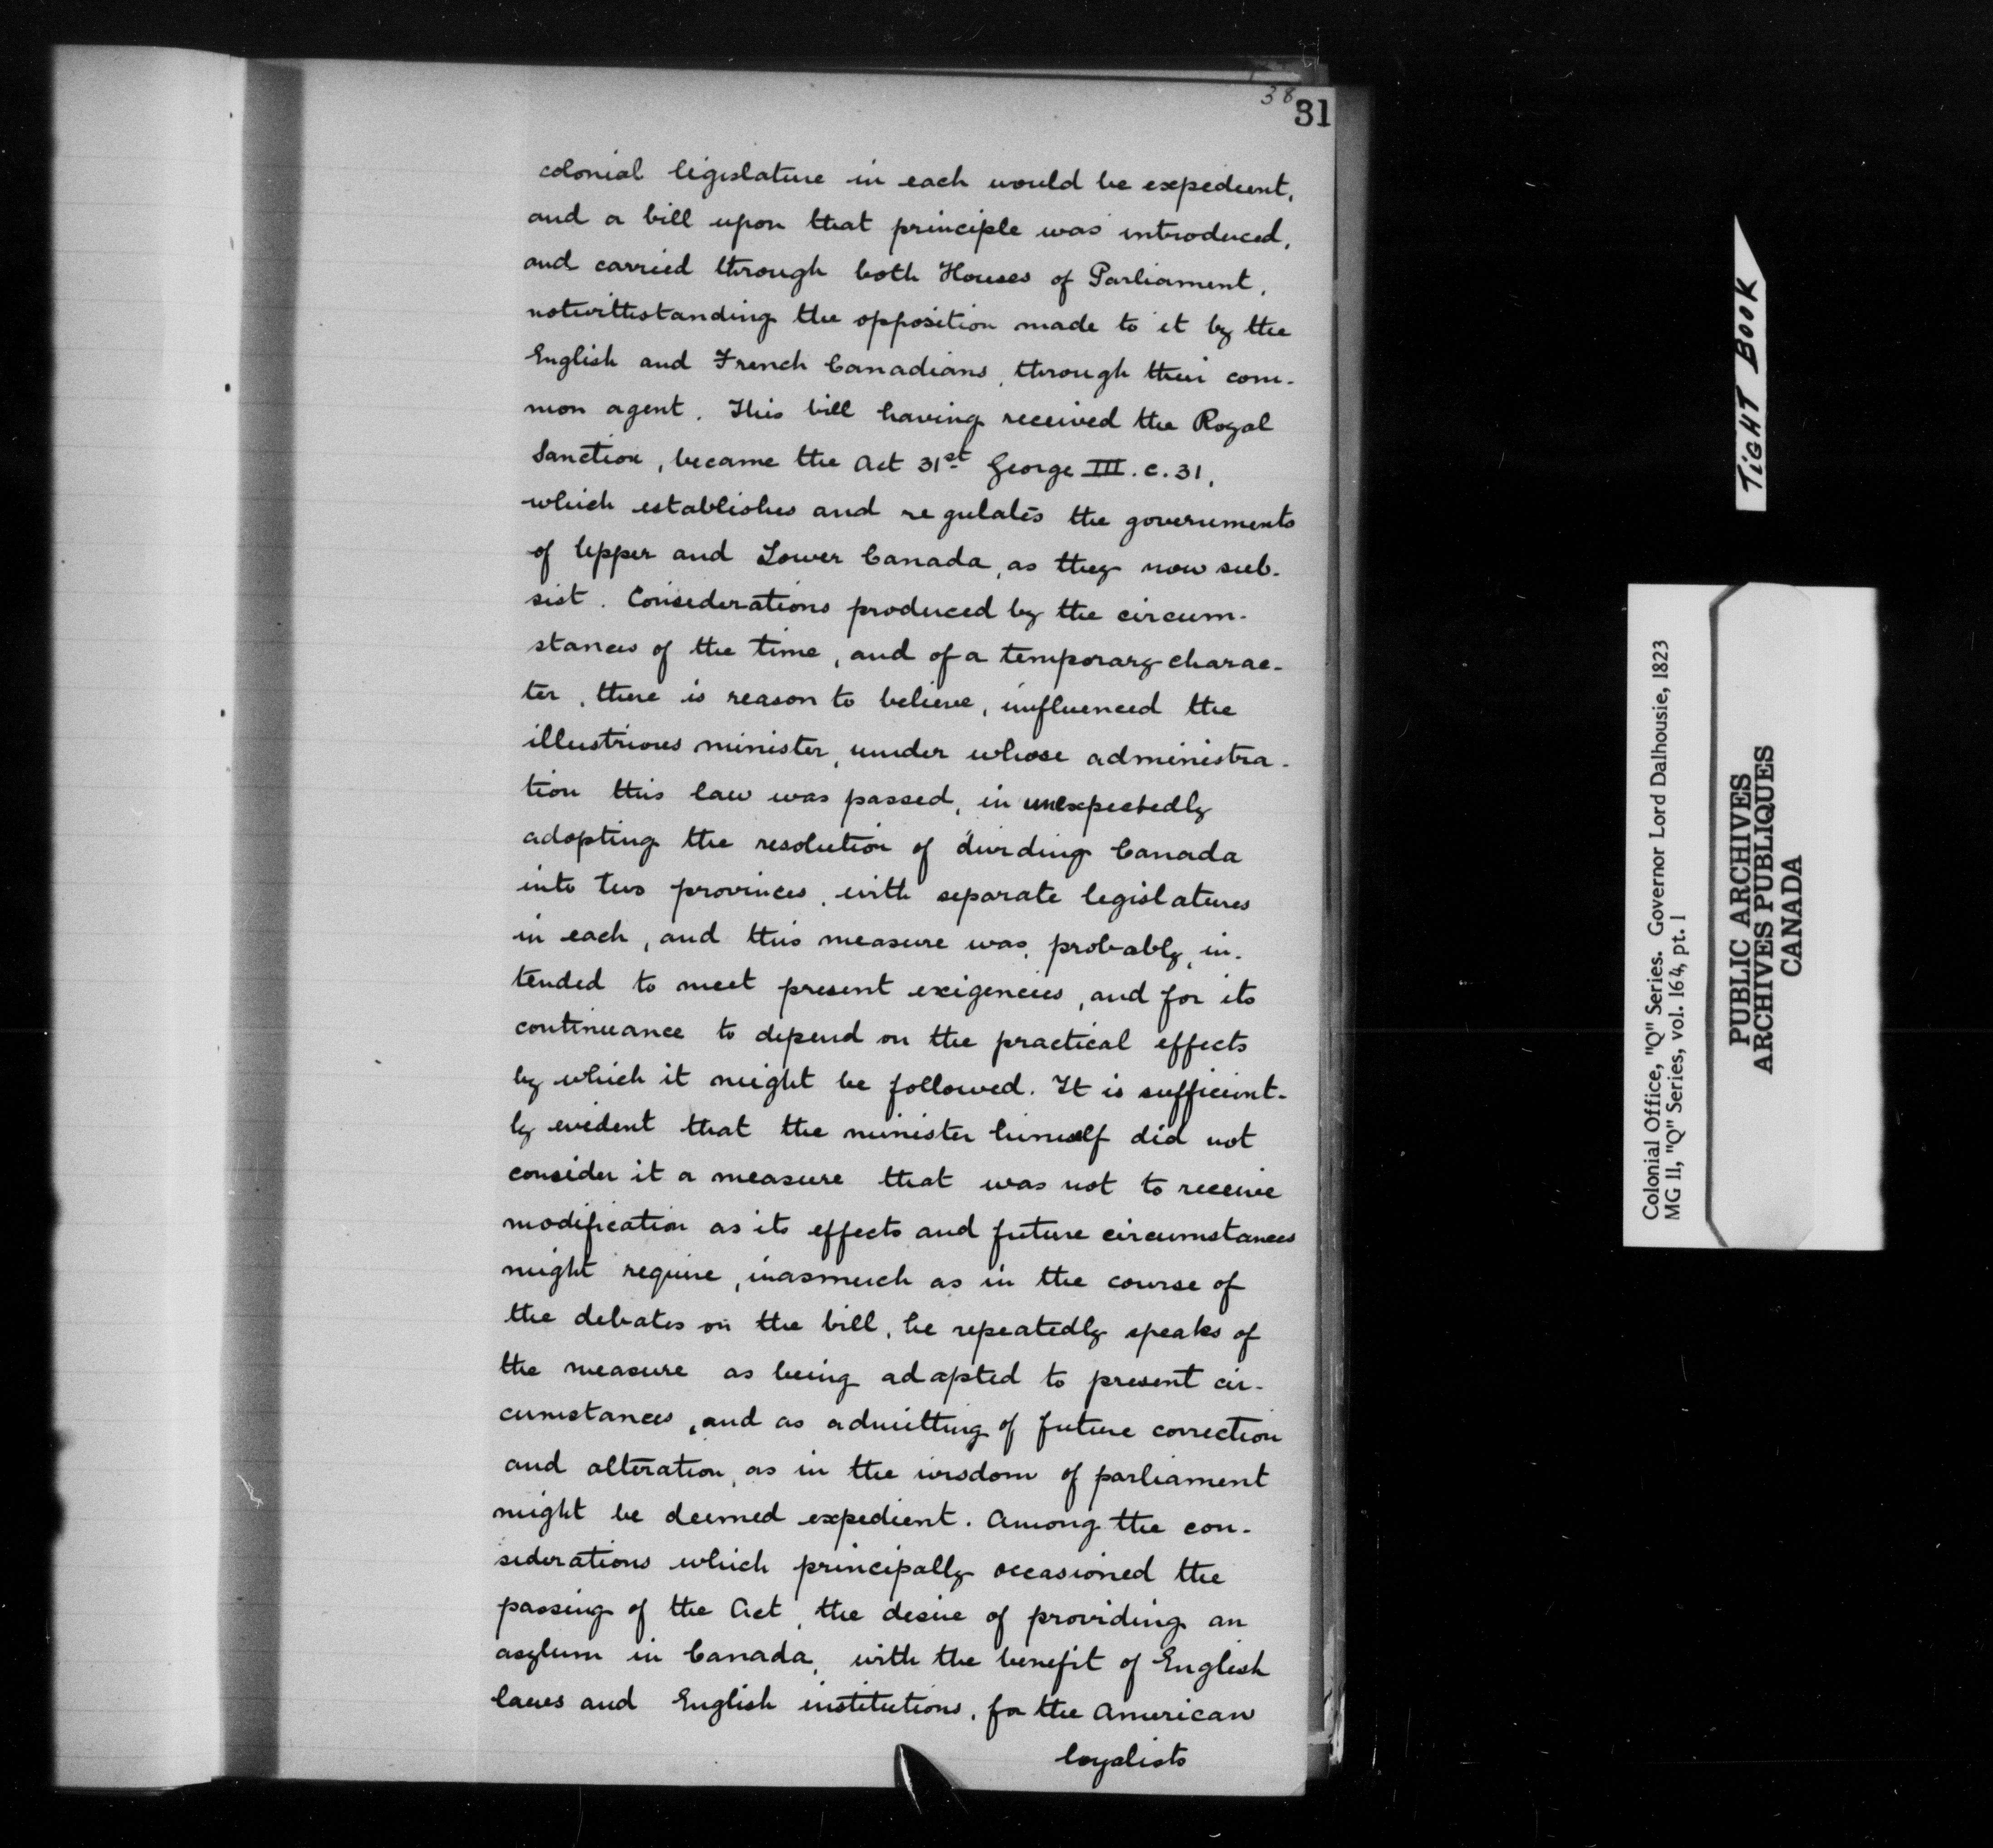 38
31
colonial legislature in each would be expedient,
and a bill upon that principle was introduced,
and carried through both Houses of Parliament,
notwithstanding the opposition made to it by the
English and French Canadians, through their com-
mon agent. This bill having received the Royal
Sanction, became the Act 31st George III. c. 31,
which establishes and regulates the governments
of Upper and Lower Canada, as they now sub-
sist. Considerations produced by the circum-
stances of the time, and of a temporary charac-
ter, there is reason to believe, influenced the
illustrious minister, under whose administra-
tion this law was passed, in unexpectedly
adopting the resolution of dividing Canada
into two provinces, with separate legislatures
in each, and this measure was, probably, in-
tended to meet present exigencies, and for its
continuance to depend on the practical effects
by which it might be followed. It is sufficient-
ly evident that the minister himself did not
consider it a measure that was not to receive
modification as its effects and future circumstances
might require, inasmuch as in the course of
the debates on the bill, he repeatedly speaks of
the measure as being adapted to present cir-
cumstances, and as admitting of future correction
and alteration, as in the wisdom of parliament
might be deemed expedient. Among the con-
siderations which principally occasioned the
passing of the Act, the desire of providing an
asylum in Canada, with the benefit of English
laws and English institutions, for the American
loyalists
TIGHT BOOK
Colonial Office, "Q" Series. Governor Lord Dalhousie, 1823
MG 11, "Q" Series, vol. 164, pt. 1
PUBLIC ARCHIVES
ARCHIVES PUBLIQUES
CANADA